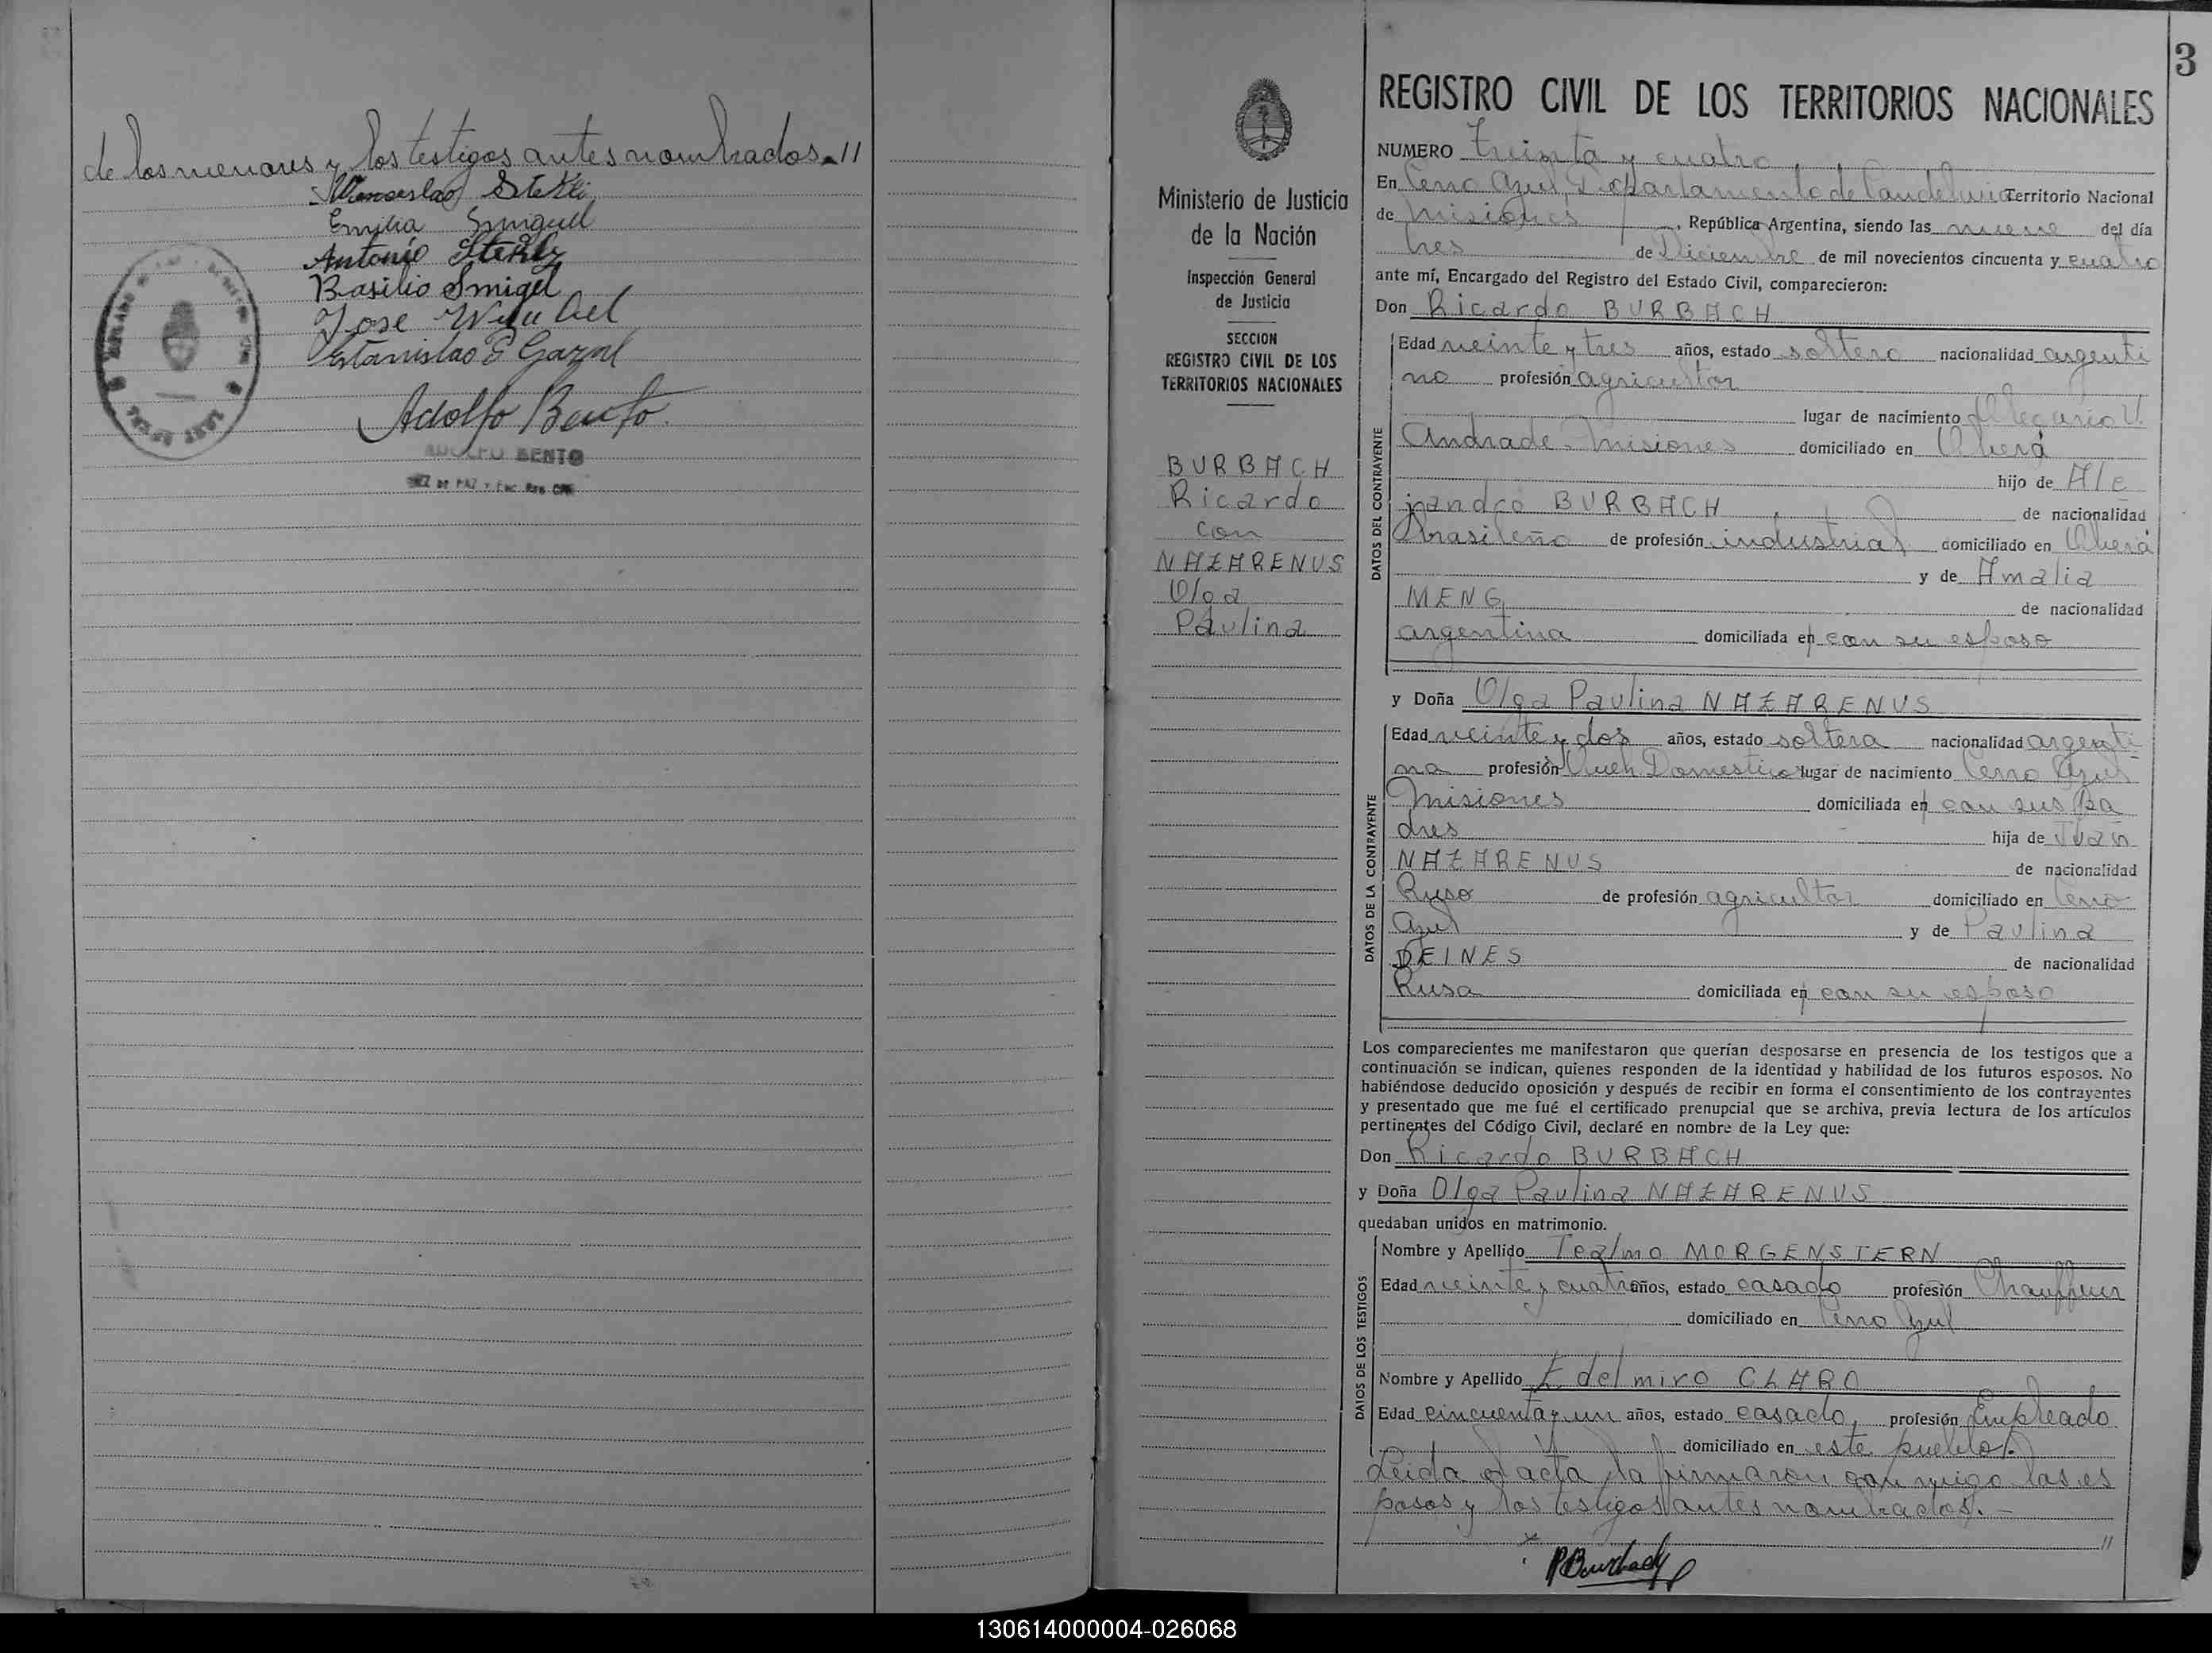 de los menores y los testigos antes nombrados.//
Emilia Smiguel
Antonio
Basilio Smigel
Jose
Estanislao Gazal
Adolfo Bento
ADOLFO BENTO
3
Ministerio de Justicia
de la Nación
Inspección General
de Justicia
SECCION
REGISTRO CIVIL DE LOS
TERRITORIOS NACIONALES
BURBACH
Ricardo
con
NAZARENUS
Olga
Paulina
REGISTRO CIVIL DE LOS TERRITORIOS NACIONALES
NUMERO Treinta y cuatro
En Cerro Azul, Departamento de Candelaria Territorio Nacional
de Misiones, República Argentina, siendo las nueve del día
tres de Diciembre de mil novecientos cincuenta y cuatro
ante mí, Encargado del Registro del Estado Civil, comparecieron:
Don Ricardo BURBACH
DATOS DEL CONTRAYENTE
Edad veinte y tres años, estado soltero nacionalidad argenti
no profesión agricultor
lugar de nacimiento Olegario V.
Andrade - Misiones domiciliado en Oberá
hijo de Ale
jandro BURBACH de nacionalidad
brasileño de profesión industrial domiciliado en Oberá
y de Amalia
MENG de nacionalidad
argentina domiciliada en con su esposo
y Doña Olga Paulina NAZARENUS
DATOS DE LA CONTRAYENTE
Edad veinte y dos años, estado soltera nacionalidad argenti
na profesión Queh Domestico lugar de nacimiento Cerro Azul
Misiones domiciliada en con sus pa
dres hija de Juan
NAZARENUS de nacionalidad
Ruso de profesión agricultor domiciliado en Cerro
Azul y de Paulina
DEINES de nacionalidad
Rusa domiciliada en con su esposo
Los comparecientes me manifestaron que querían desposarse en presencia de los testigos que a
continuación se indican, quienes responden de la identidad y habilidad de los futuros esposos. No
habiéndose deducido oposición y después de recibir en forma el consentimiento de los contrayentes
y presentado que me fué el certificado prenupcial que se archiva, previa lectura de los artículos
pertinentes del Código Civil, declaré en nombre de la Ley que:
Don Ricardo BURBACH
y Doña Olga Paulina NAZARENUS
quedaban unidos en matrimonio.
DATOS DE LOS TESTIGOS
Nombre y Apellido Tealmo MORGENSTERN
Edad veinte y cuatro años, estado casado profesión Chauffeur
domiciliado en Cerro Azul
Nombre y Apellido Edelmiro CLARO
Edad cincuenta y un años, estado casado, profesión Empleado
domiciliado en este pueblo.
Leida el acta la firmaron conmigo los es
posos y los testigos antes nombrados.-
//
RBurbach
130614000004-026068